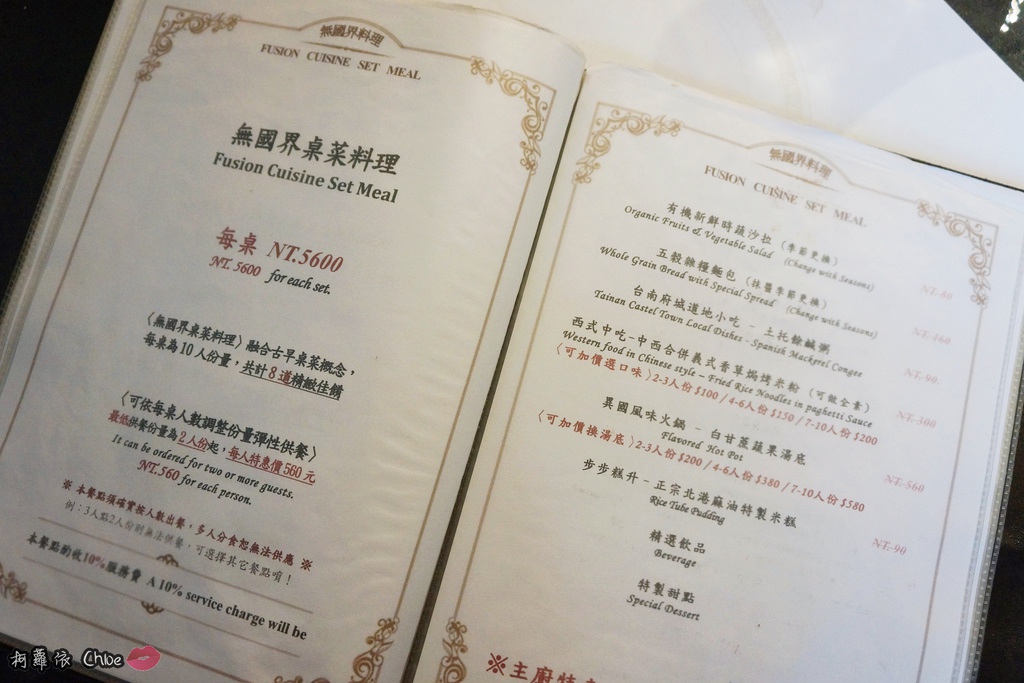 無國界料理
FUSION CUISINE SET MEAL
無國界桌菜料理
Fusion Cuisine Set Meal
每桌 NT.5600
NT. 5600 for each set.
〈無國界桌菜料理〉融合古早桌菜概念，
每桌為10人份量，共計8道精緻佳餚
〈可依每桌人數調整份量彈性供餐〉
最低供餐份量為2人份起，每人特惠價560元
It can be ordered for two or more guests.
NT.560 for each person.
※ 本餐點須確實按人數出餐，多人分食恕無法供應 ※
例：3人點2人份則無法供餐，可選擇其它餐點唷！
本餐點酌收10%服務費 A 10% service charge will be
無國界料理
FUSION CUISINE SET MEAL
有機新鮮時蔬沙拉（季節更換）
Organic Fruits & Vegetable Salad (Change with Seasons)
NT.80
五穀雜糧麵包（抹醬季節更換）
Whole Grain Bread with Special Spread (Change with Seasons)
NT.160
台南府城道地小吃 - 土托魚鹹粥
Tainan Castel Town Local Dishes - Spanish Mackerel Congee
NT.90
西式中吃-中西合併義式香草焗烤米粉（可做全素）
Western food in Chinese style – Fried Rice Noodles in paghetti Sauce
NT.300
〈可加價選口味〉2-3人份 $100 / 4-6人份 $150 / 7-10人份 $200
異國風味火鍋 - 白甘蔗蔬果湯底
Flavored Hot Pot
NT.560
〈可加價換湯底〉2-3人份 $200 / 4-6人份 $380 / 7-10人份 $580
步步糕升 - 正宗北港麻油特製米糕
Rice Tube Pudding
NT.90
精選飲品
Beverage
特製甜點
Special Dessert
※主廚特
柯蘿依 Chloe